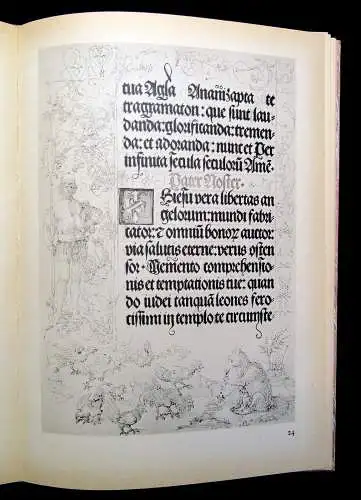 tua Agla Anamzapta te
tragramaton: que sunt lau-
danda: glorificanda: tremen
da: et adoranda: nunc et Per
infinita secula seculorũ Amẽ.
Pater Noster.
O Hiesu vera libertas an
gelorum: mundi fabri
cator: et omniũ bonoꝝ auctor:
via salutis eterne: verus osten
sor. Memento comprehensio
nis et temptationis tue: quan
do iudei tanquã leones fero
cissimi in templo te circumste
24